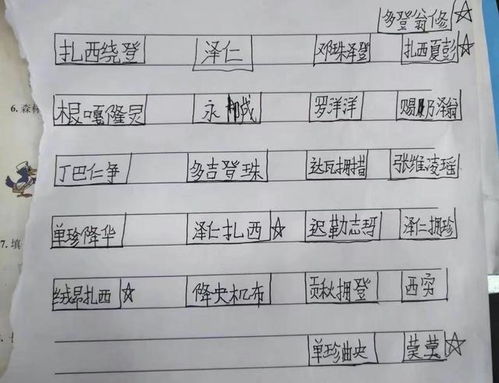 多登翁修☆
扎西绕登 泽仁 邓珠泽登 扎西夏彭☆
根嘎隆灵 永 罗洋洋 赐乃泽翁
丁巴仁争 多吉登珠 达瓦拥措 张维凌瑶
单珍降华 泽仁扎西☆ 迟勒志哲 泽仁拥珍
绒昂扎西☆ 降央机布 贡秋拥登 西穷
单珍曲央 莫莫☆
6.森林
7.填